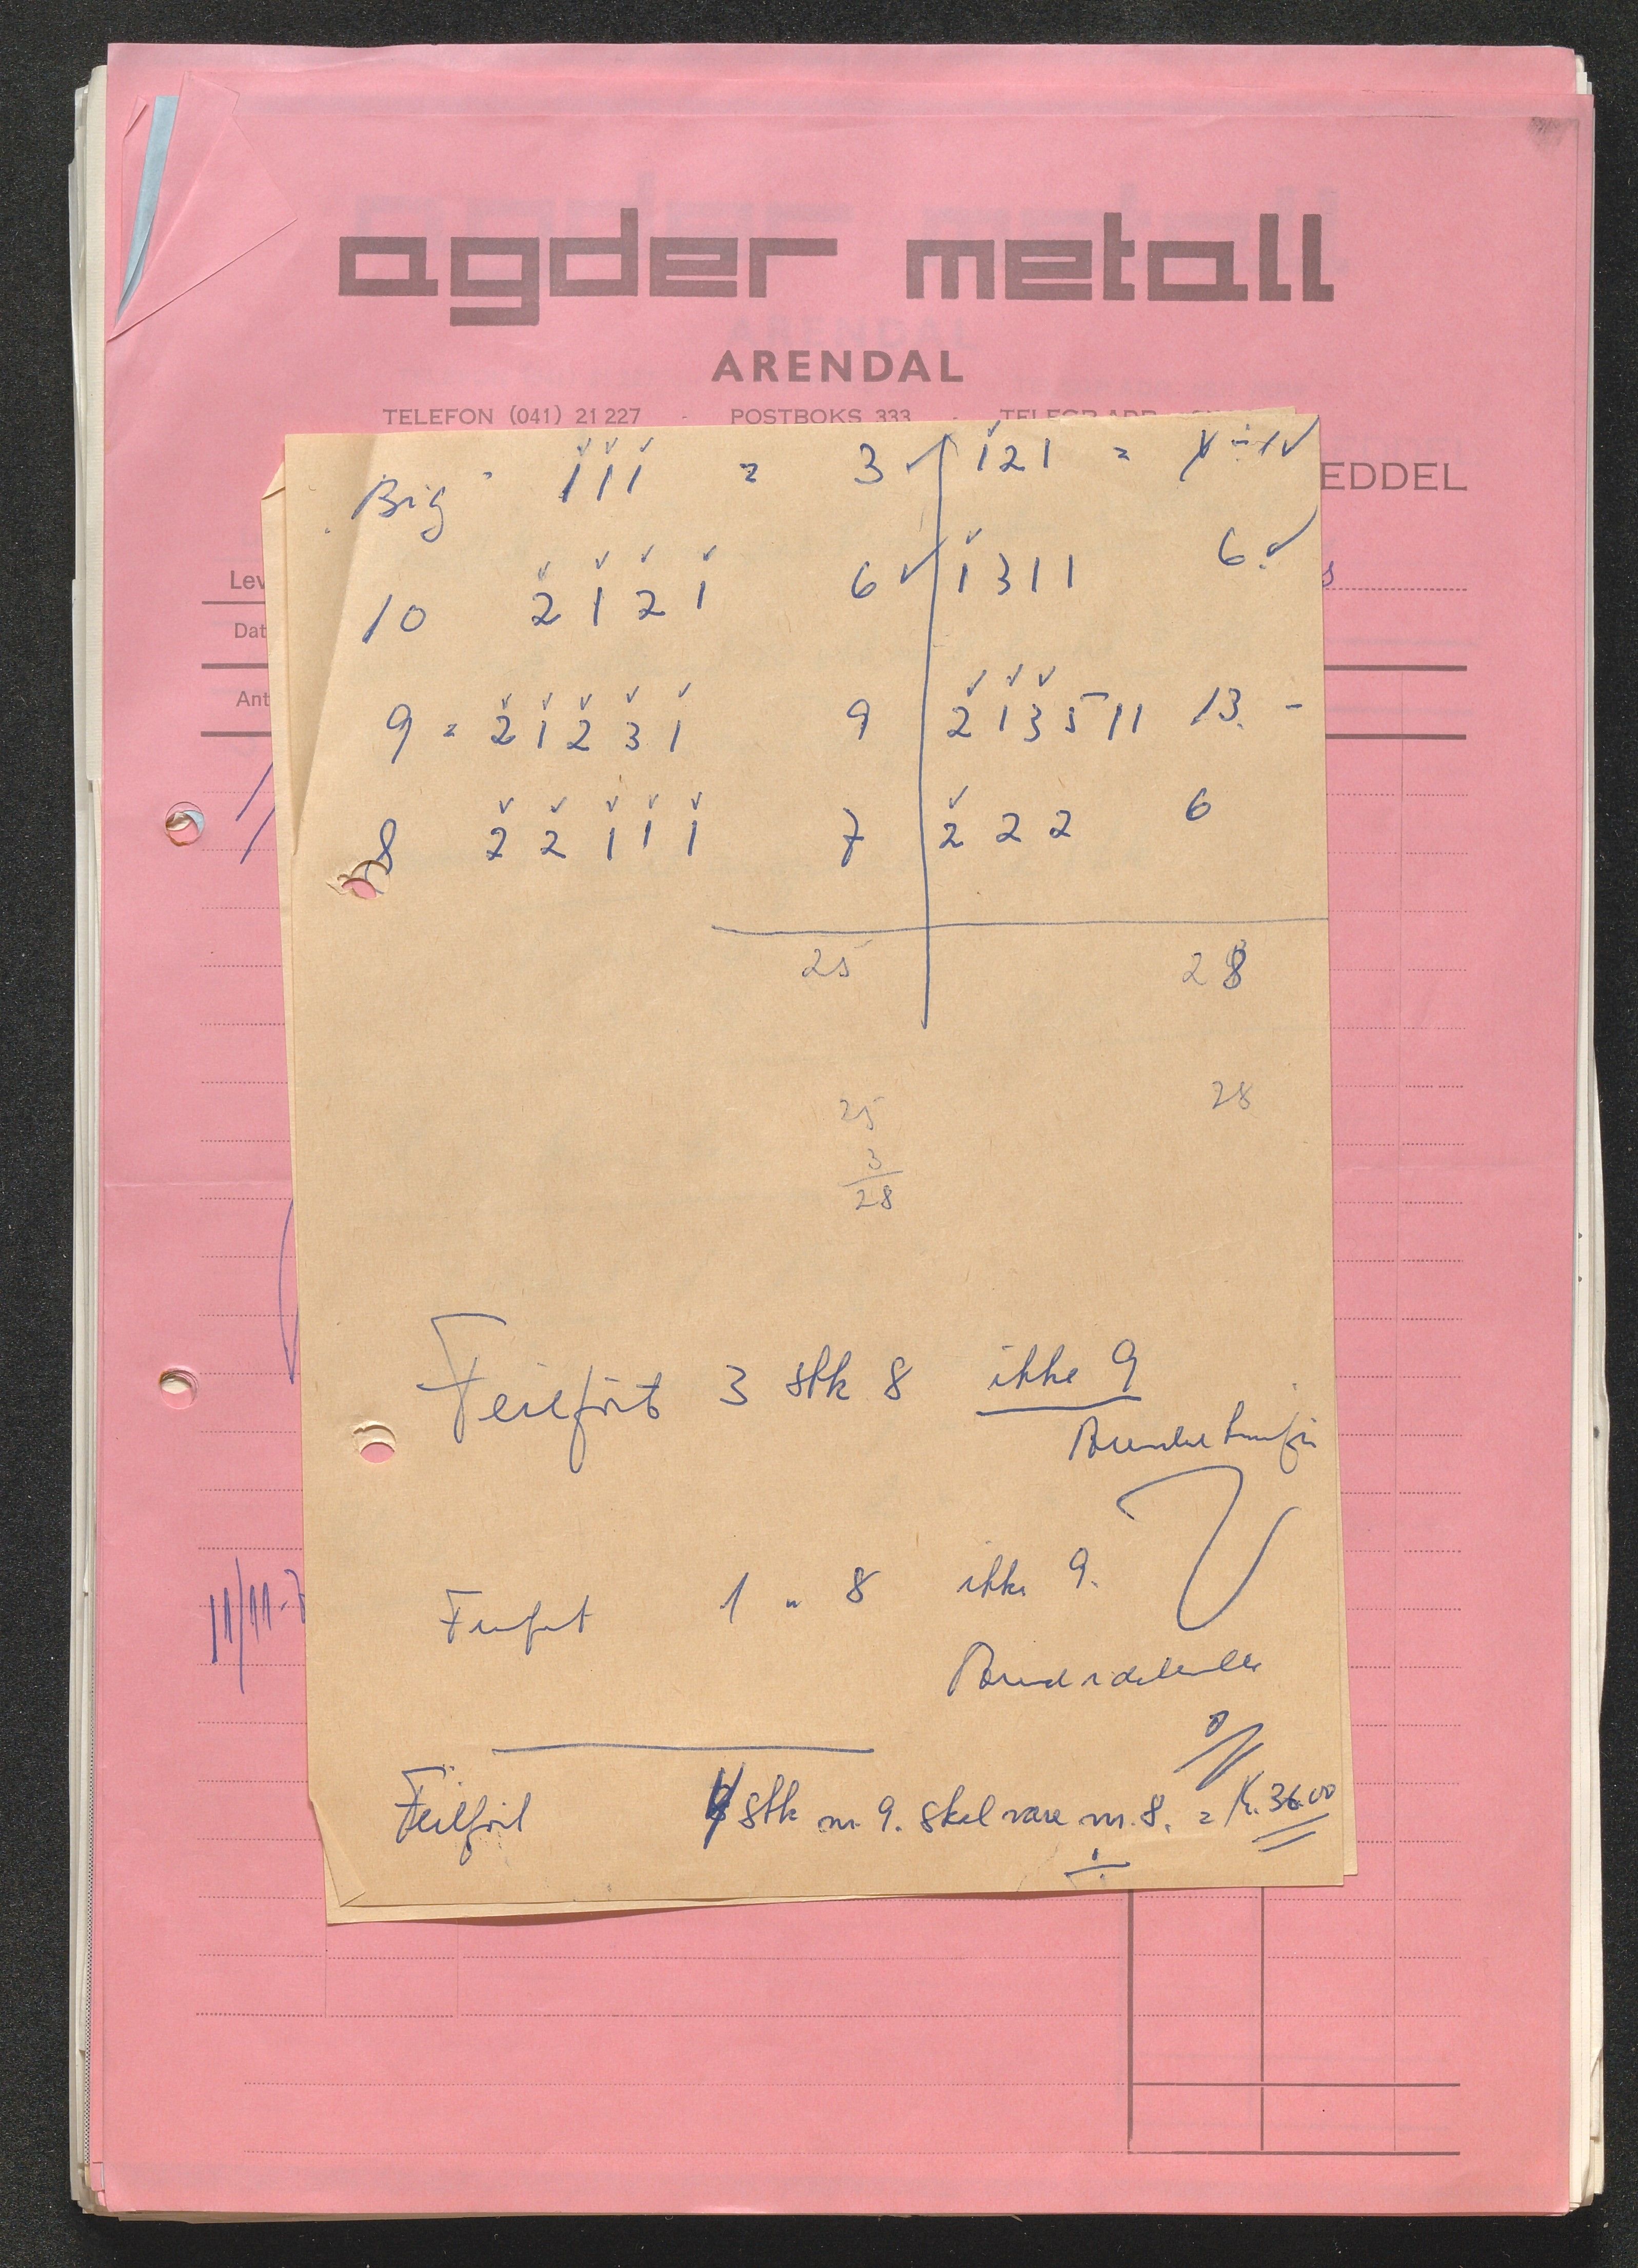 agder metall
ARENDAL
TELEFON (041) 21 227 - POSTBOKS 333 -
EDDEL
Lev
Dat
Ant
Big 1 1 1 = 3 1 2 1 =
10 2 1 2 1 6 1 3 1 1 6.
9 = 2 1 2 3 1 9 2 1 3 5 1 1 13. -
8 2 2 1 1 1 7 2 2 2 6
25 28
25 28
3
28
Feilført 3 stk 8 ikke 9
1 " 8 ikke 9.
11/11-7
Feilført 4 stk nr. 9. skal være nr. 8. = Kr. 36.00